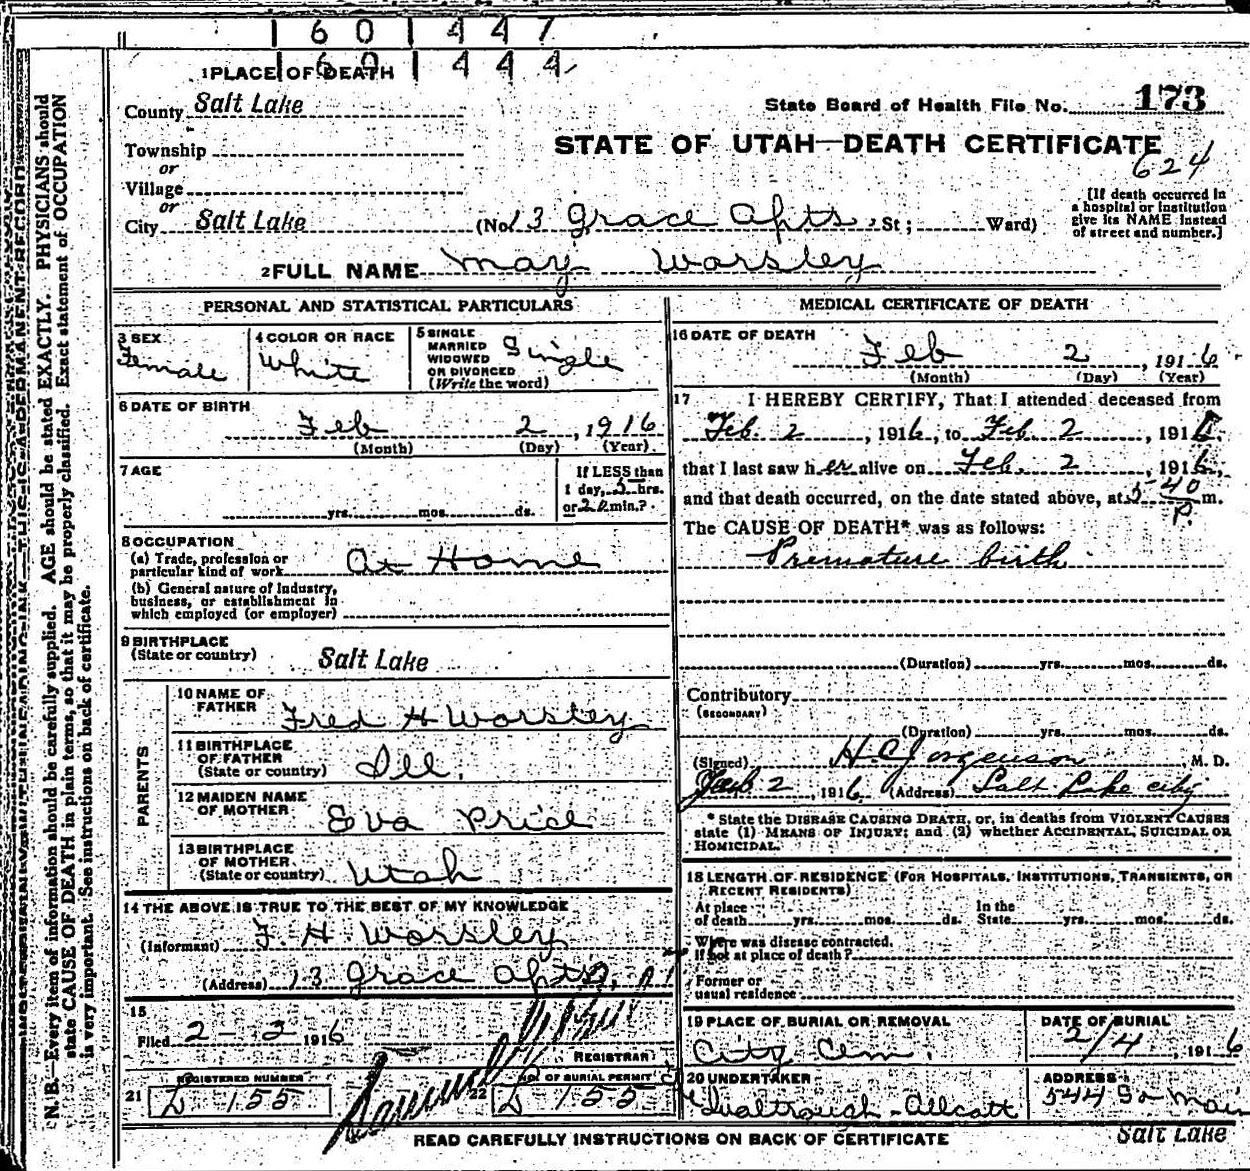 1 6 0 1 4 4 7
1 6 0 1 4 4 4
1 PLACE OF DEATH
County Salt Lake
State Board of Health File No. 173
STATE OF UTAH—DEATH CERTIFICATE
624
Township
or
Village
or
City Salt Lake (No. 13 Grace Apts. St; Ward)
[If death occurred in
a hospital or institution
give its NAME instead
of street and number.]
2 FULL NAME May Worsley
PERSONAL AND STATISTICAL PARTICULARS
3 SEX
Female
4 COLOR OR RACE
White
5 SINGLE
MARRIED
WIDOWED
OR DIVORCED
(Write the word)
Single
6 DATE OF BIRTH
Feb 2, 1916
(Month) (Day) (Year)
7 AGE
yrs. mos. ds.
If LESS than
1 day, 5 hrs.
or 20 min.?
8 OCCUPATION
(a) Trade, profession or
particular kind of work At Home
(b) General nature of Industry,
business, or establishment in
which employed (or employer)
9 BIRTHPLACE
(State or country) Salt Lake
PARENTS
10 NAME OF
FATHER Fred H Worsley
11 BIRTHPLACE
OF FATHER
(State or country) Ill.
12 MAIDEN NAME
OF MOTHER Eva Price
13 BIRTHPLACE
OF MOTHER
(State or country) Utah
14 THE ABOVE IS TRUE TO THE BEST OF MY KNOWLEDGE
(Informant) F. H Worsley
(Address) 13 Grace Apts
15
Filed 2-3 1916
REGISTRAR
21 REGISTERED NUMBER
L 155
22 NO. OF BURIAL PERMIT
L 155
MEDICAL CERTIFICATE OF DEATH
16 DATE OF DEATH
Feb 2, 1916
(Month) (Day) (Year)
17 I HEREBY CERTIFY, That I attended deceased from
Feb. 2, 1916, to Feb. 2, 1916
that I last saw her alive on Feb. 2, 1916,
and that death occurred, on the date stated above, at 5 40 P. m.
The CAUSE OF DEATH* was as follows:
Premature birth
(Duration) yrs. mos. ds.
Contributory
(SECONDARY)
(Duration) yrs. mos. ds.
(Signed) H. C. Jorgenson, M. D.
Feb 2, 1916 (Address) Salt Lake City
* State the DISEASE CAUSING DEATH, or, in deaths from VIOLENT CAUSES
state (1) MEANS OF INJURY; and (2) whether ACCIDENTAL, SUICIDAL OR
HOMICIDAL.
18 LENGTH OF RESIDENCE (FOR HOSPITALS, INSTITUTIONS, TRANSIENTS, OR
RECENT RESIDENTS)
At place In the
of death yrs. mos. ds. State yrs. mos. ds.
Where was disease contracted.
If not at place of death?
Former or
usual residence
19 PLACE OF BURIAL OR REMOVAL
City Cem.
DATE OF BURIAL
2/4, 1916
20 UNDERTAKER
ADDRESS
544 So Main
Salt Lake
READ CAREFULLY INSTRUCTIONS ON BACK OF CERTIFICATE
N. B.—Every item of information should be carefully supplied. AGE should be stated EXACTLY. PHYSICIANS should
state CAUSE OF DEATH in plain terms, so that it may be properly classified. Exact statement of OCCUPATION
is very important. See instructions on back of certificate.